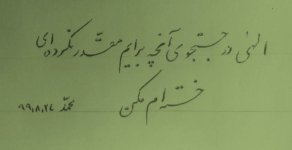 الهی در جستجوی آنچه برایم مقدّر نکرده‌ای
خسته‌ام مکن
محمّد ۹۹،۸،۲۷